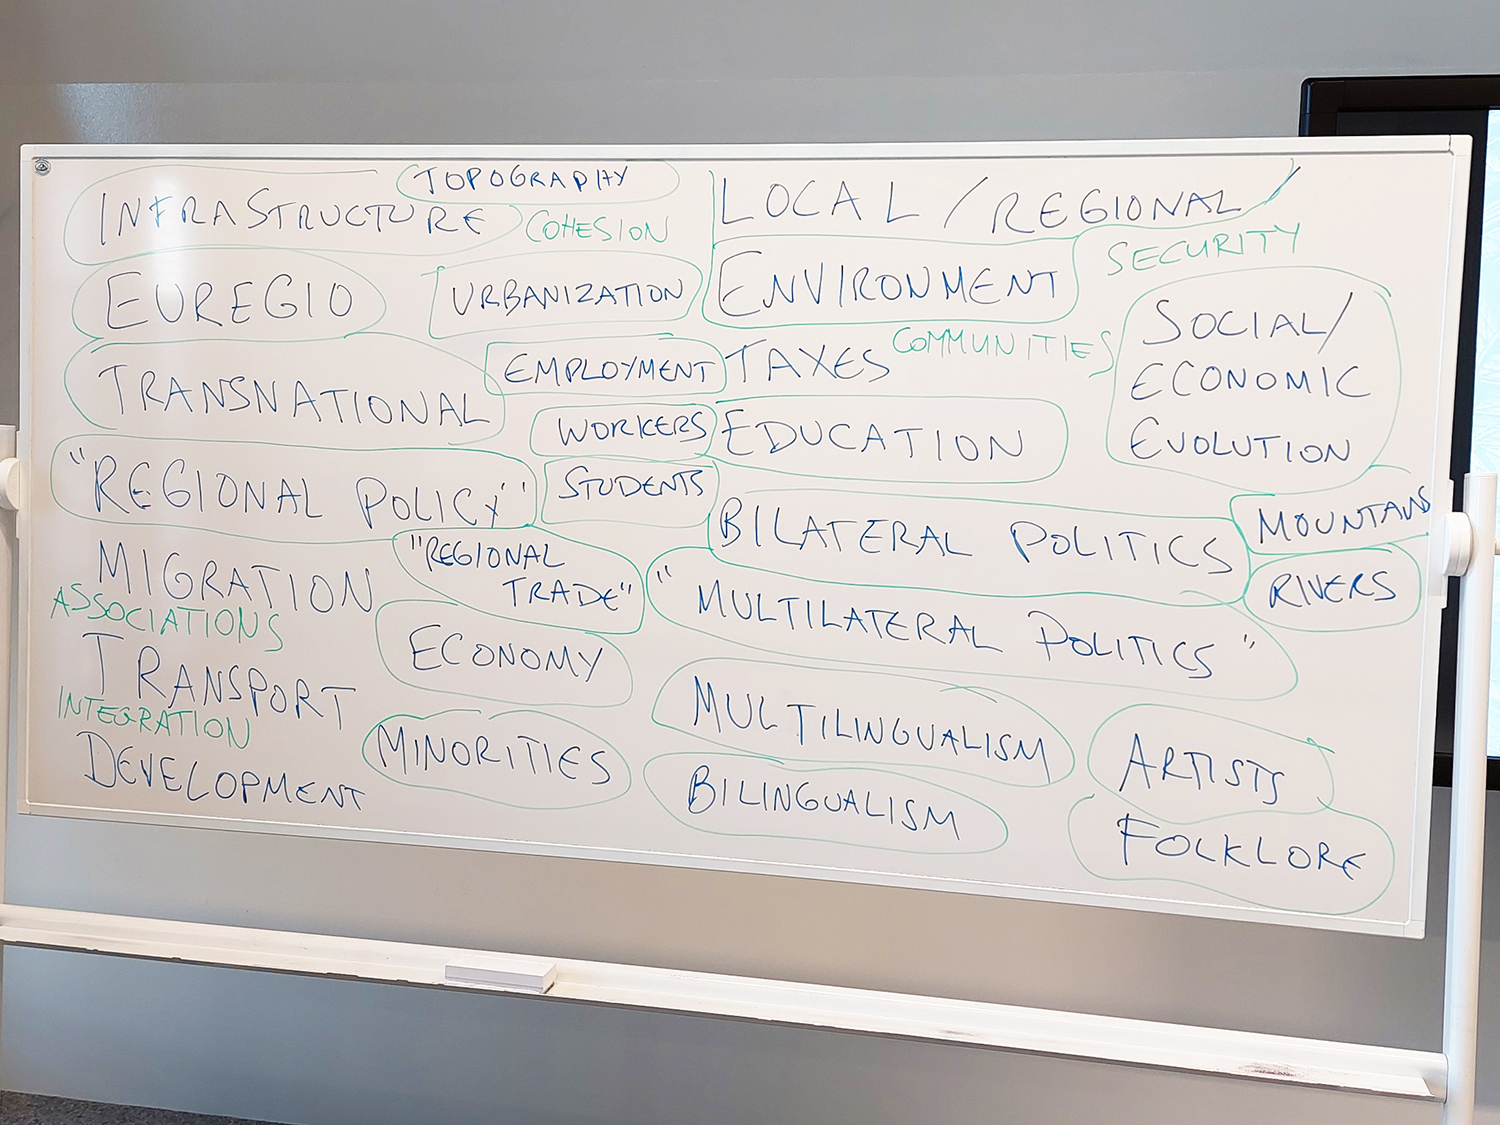 TOPOGRAPHY
INFRASTRUCTURE
COHESION
EUREGIO
URBANIZATION
TRANSNATIONAL
EMPLOYMENT
WORKERS
"REGIONAL POLICY"
STUDENTS
MIGRATION
"REGIONAL
TRADE"
ASSOCIATIONS
ECONOMY
TRANSPORT
INTEGRATION
MINORITIES
DEVELOPMENT
LOCAL / REGIONAL /
SECURITY
ENVIRONMENT
TAXES
COMMUNITIES
SOCIAL/
ECONOMIC
EVOLUTION
EDUCATION
BILATERAL POLITICS
MOUNTAINS
RIVERS
"MULTILATERAL POLITICS"
MULTILINGUALISM
BILINGUALISM
ARTISTS
FOLKLORE